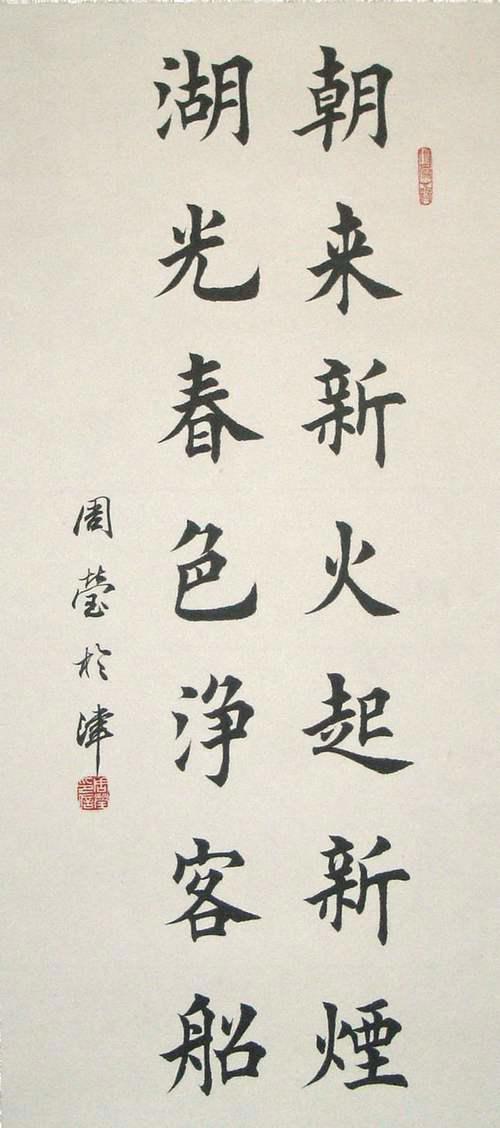 朝来新火起新煙
湖光春色浄客船
周瑩於津